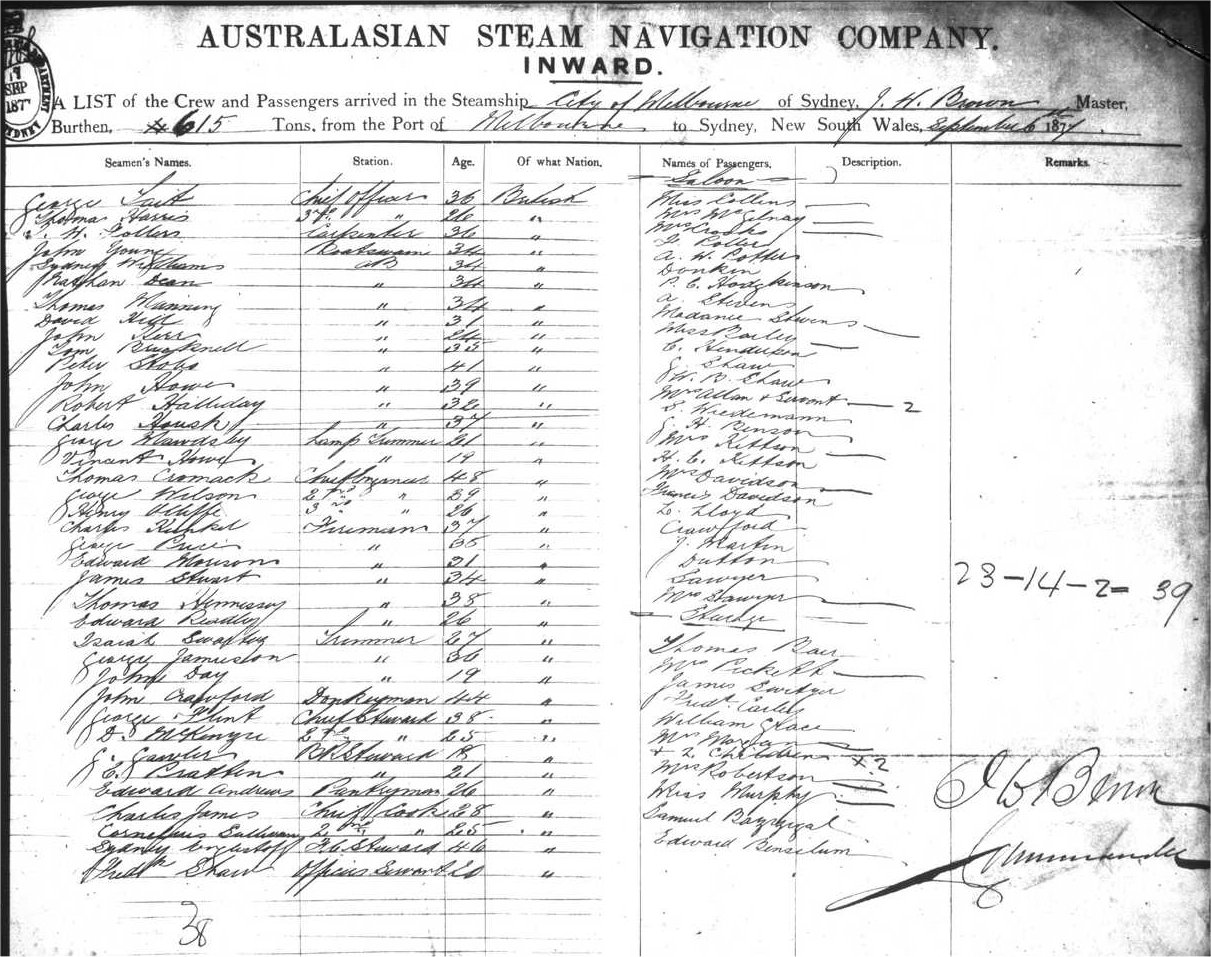 AUSTRALASIAN STEAM NAVIGATION COMPANY.
INWARD.
SEP
187
SYDNEY
A LIST of the Crew and Passengers arrived in the Steamship City of Melbourne of Sydney, J. H. Brown Master,
Burthen, 615 Tons, from the Port of Melbourne to Sydney, New South Wales, September 6 187
Seamen's Names. Station. Age. Of what Nation. Names of Passengers. Description. Remarks.
Saloon
George Tait Chief Officer 36 British Miss Collins
Thomas Harris 3rd " 26 " Mrs
Carpenter 36 " Mrs Crooks
John Young Boatswain 34 "
Sydney Williams AB 34 " A. W. Potter
Nathan Dean " 34 " Donkin
Hodgkinson
Thomas Manning " 34 " A. Steven
David " 31 " Madame Steven
John Kerr " " Miss Bailey
Tom Brucknell " " C. Henderson
Peter Stobs " 41 " Shaw
John Howe " 39 " W. B. Shaw
Robert Halliday " 32 " Mrs Allan & Servant 2
Charles " 37 " Wiedemann
George Mawdsley Lamp Trimmer 21 " J. H. Benson
Vincent Howe " 19 " Mrs Kittson
Thomas Cromack Chief Engineer 48 " H. C. Kittson
George Wilson 2nd " 29 " Mrs Davidson
Henry 3rd " 26 " Francis Davidson
Charles Kunkel Fireman 37 " Lloyd
George Price " " Crawford
Edward Morison " 21 " J. Martin
James Stuart " 34 " Dutton
Sawyer
Thomas Hennessy " 38 " Mrs Sawyer
23-14-2= 39
Edward Readly " 26 "
Isaiah Trimmer 27 " Thomas
George Jamieson " 36 " Mrs Pickett
John Day " 19 " James Switzer
John Crawford Donkeyman 44 " Fredk Carter
George Flint Chief Steward 38 " William Grace
D. McKenzie 2nd " 25 " Mrs
G. Gawler Steward 18 " + 2 Children x 2
C. Pratten " 21 " Mrs Robertson
Edward Andrews Pantryman 26 " Miss Murphy
Charles James Chief Cook 28 " Samuel
Cornelius Sullivan 2nd " 25 " Edward
Sydney Steward 46 "
Fredk Shaw Officers Servant 20 "
J W Brown
Commander
38